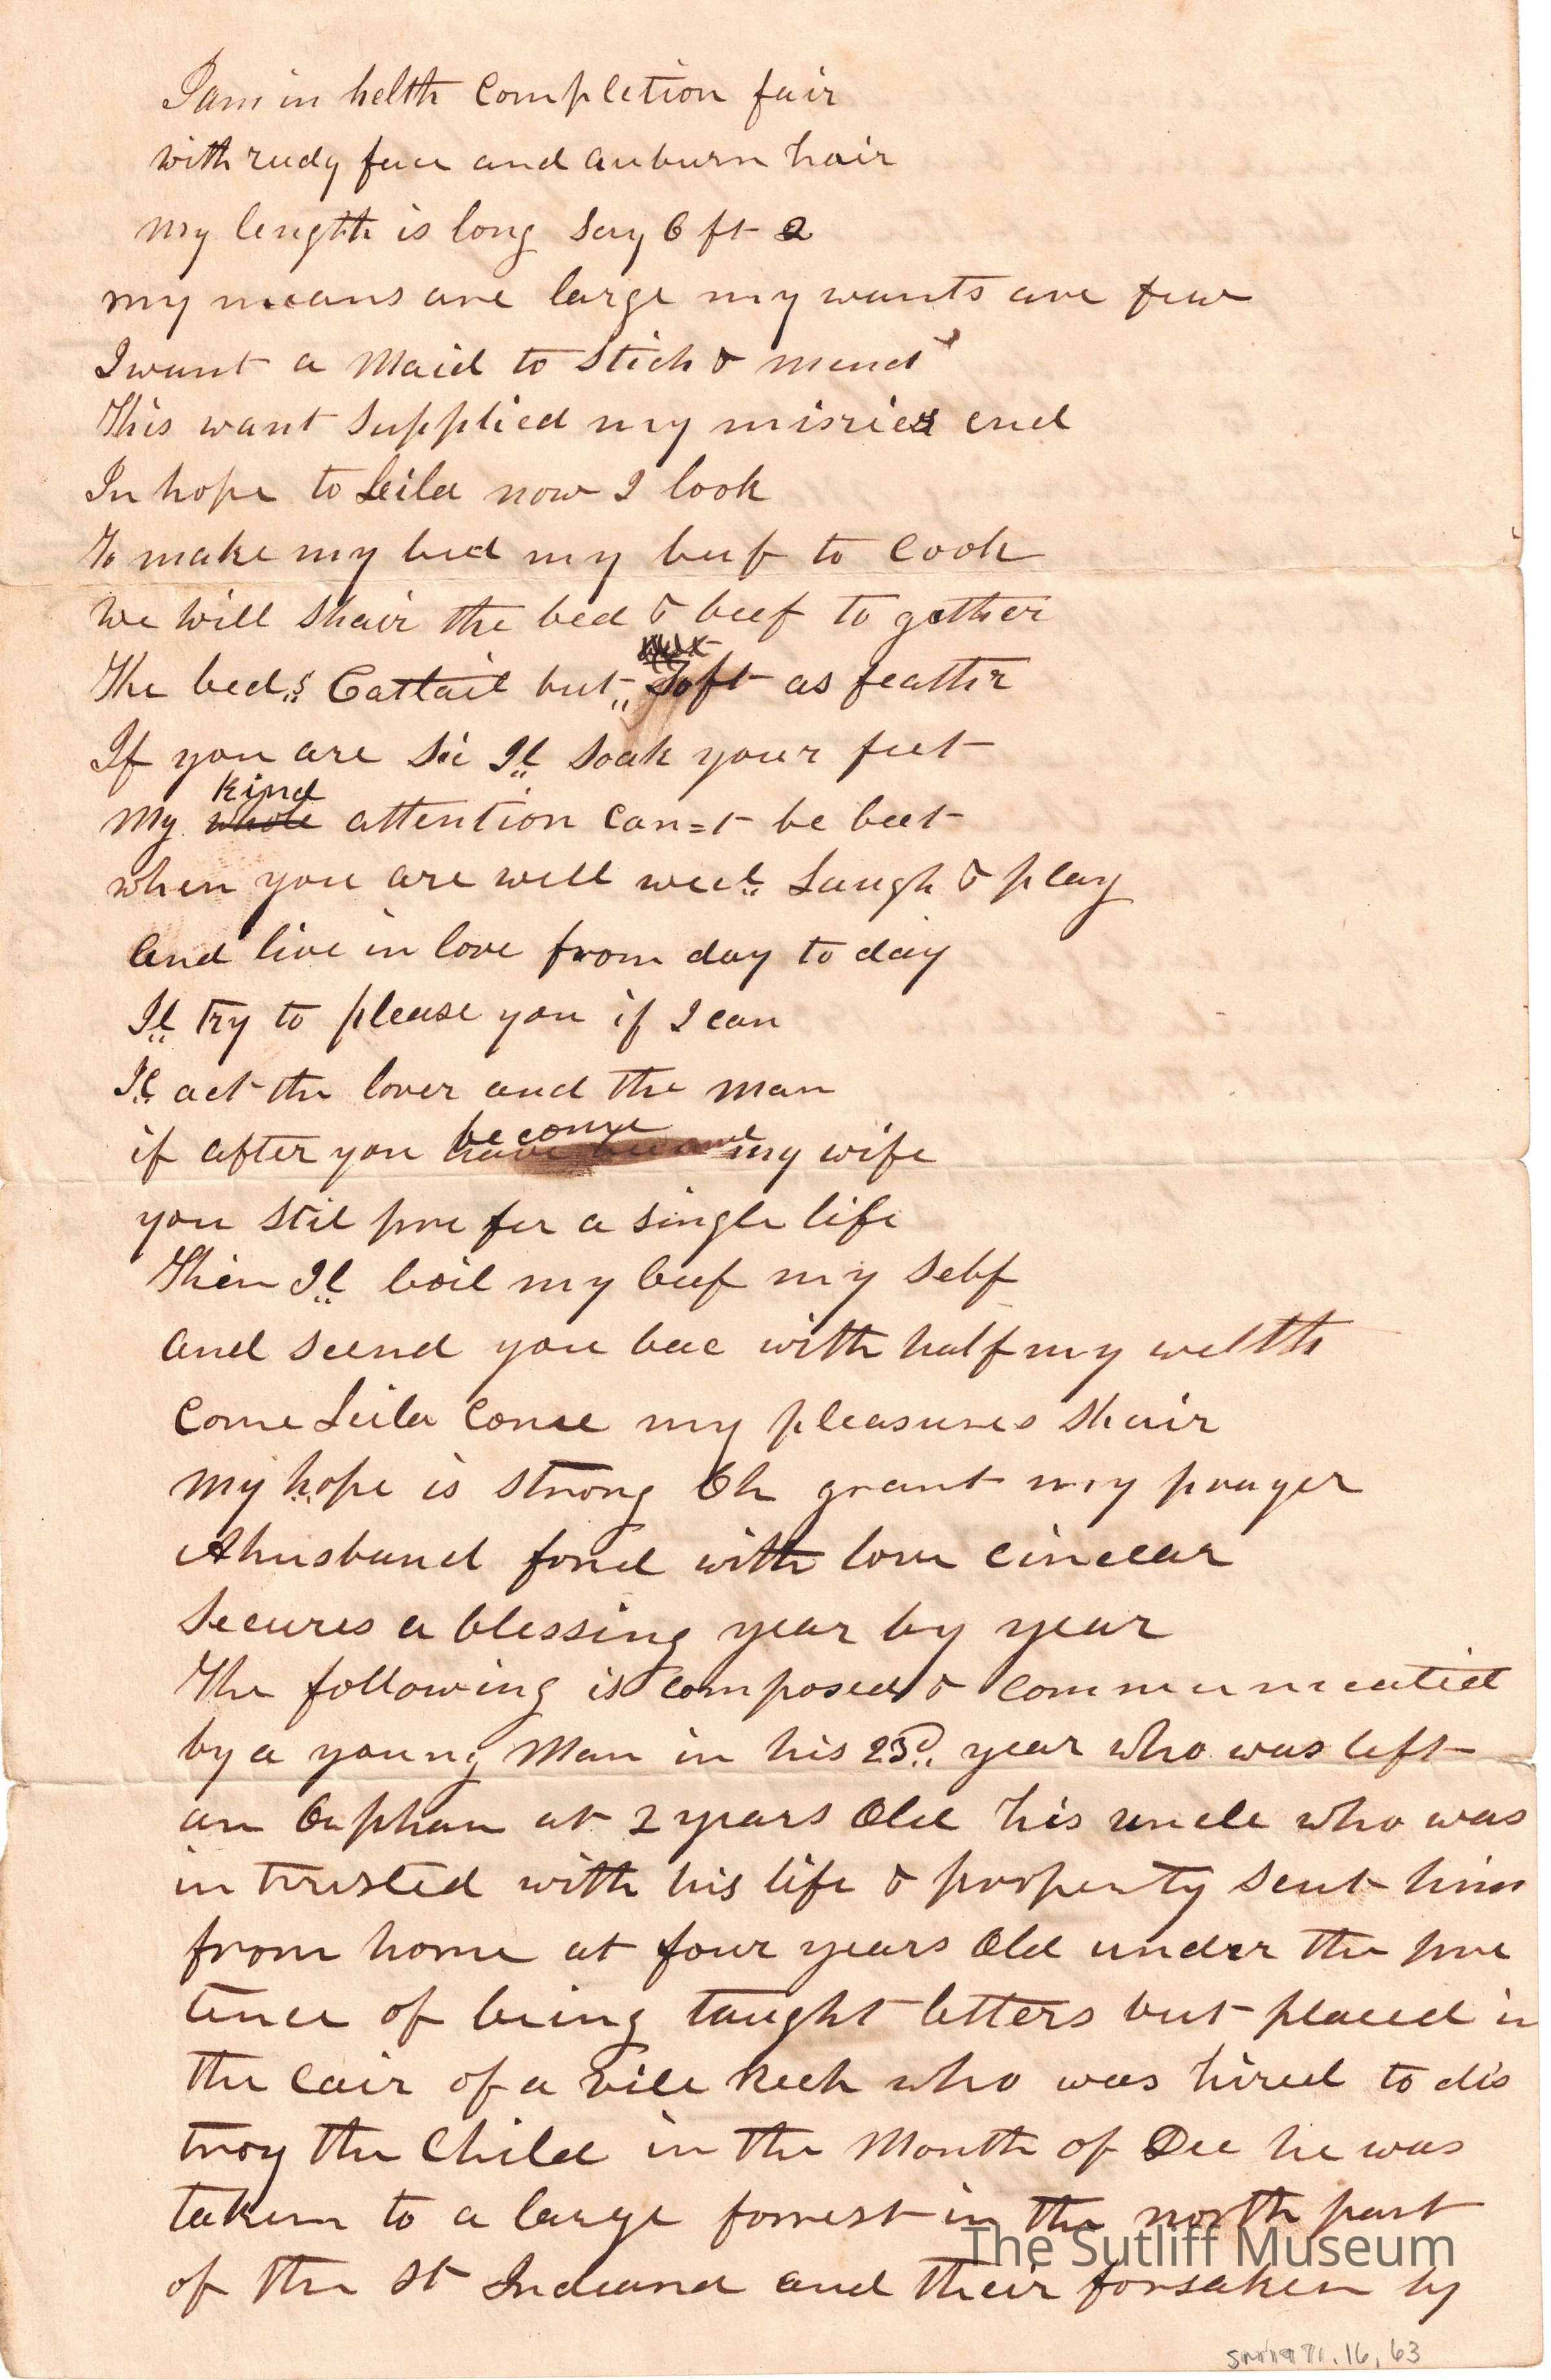 I am in helth Complction fair
with rudy face and auburn hair
my length is long Say 6 ft 2
my means are large my wants are few
I want a Maid to stich & mend
This want supplied my misries end
In hope to Leila now I look
To make my bed my beef to Cook
we will shair the bed & beef to gether
The bed,s Cattail but soft as feather
If you are sic Il soak your feet
My kind whole attention can=t be beet
when you are well weel Laugh & play
And live in love from day to day
Il Try to please you if I can
Il act the lover and the man
if after you become my wife
you stil pre fer a single life
Then Il boil my beef my self
And seend you bac with half my welth
Come Leila Come my pleasures shair
My hope is strong Oh grant my prayer
A husband fond with love cincear
Secures a blessing year by year
The following is composed & communicatid
by a young Man in his 23d year who was left
an Orphan at 2 years Old his uncle who was
in trusted with his life & property sent him
from home at four years Old under the pre
tence of being taught letters but placed in
the cair of a vile Rech who was hired to dis
troy the Child in the Month of Dec he was
taken to a large forrest in the north part
of the St Indeana and their forsaken by
The Sutliff Museum
SM1971.16.63